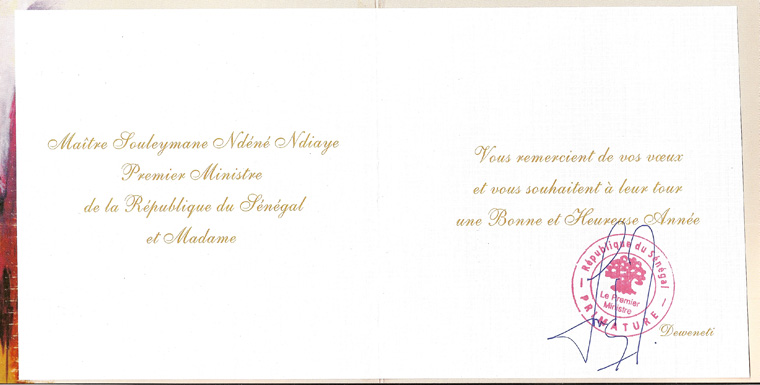 Maître Souleymane Ndéné Ndiaye
Premier Ministre
de la République du Sénégal
et Madame
Vous remercient de vos vœux
et vous souhaitent à leur tour
une Bonne et Heureuse Année
République du Sénégal
Le Premier
Ministre
PRIMATURE
Deweneti